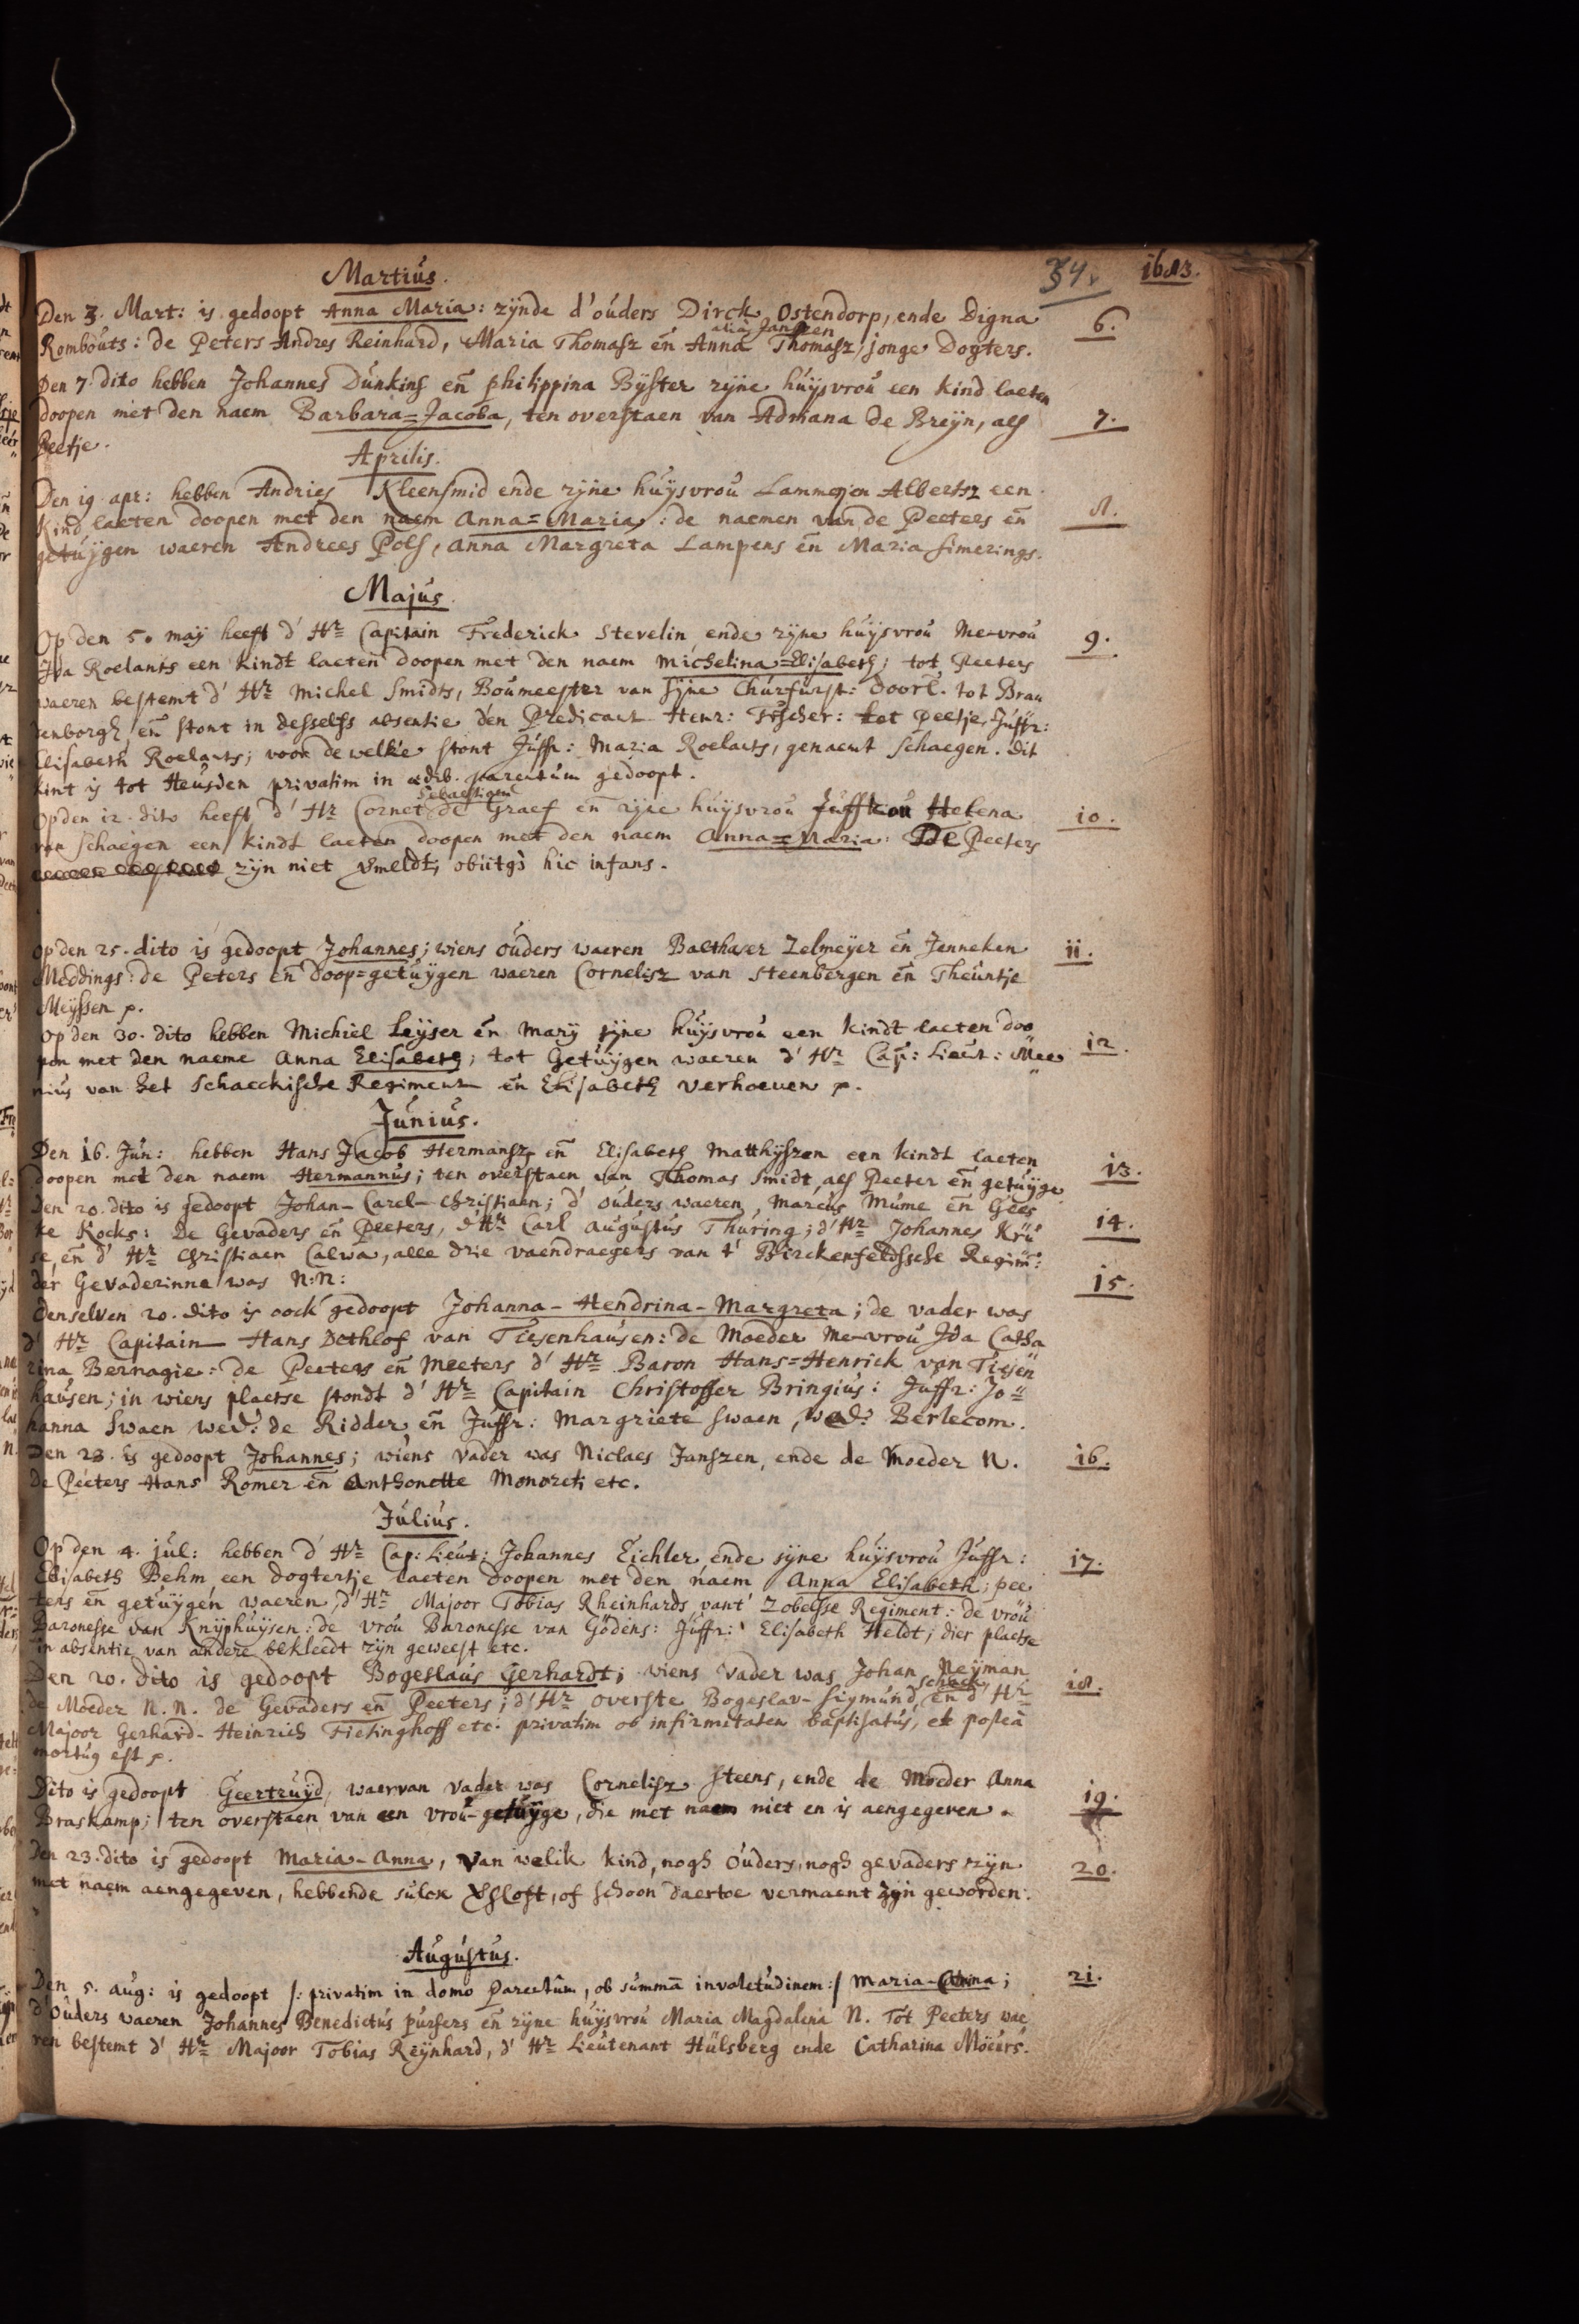 34. 1683.
Martius.
Den 3. Mart: is gedoopt Anna Maria: zynde d'ouders Dirck Ostendorp, ende Digna 6.
alias Janssen
Rombouts: de Peters Andres Reinhard, Maria Thomasz en Anna Thomasz, jonge Dogters.
Den 7. dito hebben Johannes Dunkins en Philippina Byster zyne huysvrou een kind laeten
doopen met den naem Barbara=Jacoba, ten overstaen van Adriana de Breyn, als 7.
Peetje.
Aprilis.
Den 19. apr: hebben Andries Kleensmid ende zyne huysvrou Lammegen Albertsz een
Kind laeten doopen met den naem Anna=Maria: de naemen van de Peeters en 8.
getuygen waeren Andrees Pols, Anna Margreta Lampens en Maria Simerings.
Majus.
Op den 5. may heeft d' Hr Capitain Frederick Stevelin ende zyne huysvrou Me-vrou 9.
Ida Roelants een kindt laeten doopen met den naem Michelina=Elisabeth; tot Peeters
waeren bestemt d' Hr Michel Smidts, Boumeester van Syne Churfurst: Doorl. tot Bran
denborgh, en stont in desselfs absentie den Predicant Henr: Fischer: tot Peetje, Juffr:
Elisabeth Roelants; voor de welke stont Juffr: Maria Roelants, genaemt Schaegen. Dit
kint is tot Heusden privatim in aedib. parentum gedoopt.
Sebastiaen
Op den 12. dito heeft d' Hr Cornet de Graef en zyne huysvrou Juffrou Helena 10.
van Schaegen een kindt laeten doopen met den naem Anna=Maria: De Peeters
zyn niet vmeldt, obiitqs hic infans.
Op den 25. dito is gedoopt Johannes; wiens ouders waeren Balthaser Zelmeyer en Janneken 11.
Meddings: de Peters en doop=getuygen waeren Cornelisz van Steenbergen en Theuntje
Meyssen p.
Op den 30. dito hebben Michiel Leyser en Mary syne huysvrou een kindt laeten doo 12.
pen met den naeme Anna Elisabeth; tot Getuygen waeren d' Hr Cap: Lieut: Mee
nius van het Schaeckische Regiment en Elisabeth Verhoeven p.
Junius.
Den 16. Jun: hebben Hans Jacob Hermansz en Elisabeth Matthyszen een kindt laeten 13.
doopen met den naem Hermannus; ten overstaen van Thomas Smidt, als Peeter en getuyge
Den 20. dito is gedoopt Johan-Carel-Christiaen; d' ouders waeren, Marcus Mume en Gees
te Kocks: De Gevaders en Peeters, d'Hr Carl Augustus Thuring; d'Hr Johannes Kru 14.
se, en d' Hr Christiaen Calwa, alle drie vaendraegers van 't Birckenfeldssche Regim:
der Gevaderinne was N:N: 15.
Denselven 20. dito is oock gedoopt Johanna-Hendrina-Margreta; de vader was
d' Hr Capitain Hans Dethlof van Tiesenhausen: de Moeder Me-vrou Ida Catha
rina Bernagie: de Peeters en Meeters d' Hr Baron Hans=Henrick van Tiesen
hausen; in wiens plaetse stondt d' Hr Capitain Christoffer Bringius: Juffr: Jo
hanna Swaen wed: de Ridder, en Juffr: Margriete Swaen, wed: Berlecom.
Den 23. is gedoopt Johannes; wiens vader was Niclaes Janszen, ende de Moeder N. 16.
De Peeters Hans Romer en Anthonette Monoreti etc.
Julius.
Op den 4. jul: hebben d' Hr Cap: Lieut: Johannes Eichler ende syne huysvrou Juffr: 17.
Elisabeth Behm een dogtertje laeten doopen met den naem Anna Elisabeth; pee
ters en getuygen waeren, d'Hr Majoor Tobias Rheinhards vant' Zobelsse Regiment: de vrou
Baronesse van Knyphuysen: de vrou Baronesse van Gödens: Juffr: Elisabeth Heldt; dier plaetse
in absentie van andere bekleedt zyn geweest etc.
Den 20. dito is gedoopt Bogeslaus Gerhardt; wiens vader was Johan Neyman 18.
Schack,
de Moeder N.N. de Gevaders en Peeters; d'Hr overste Bogeslav-Sigmund, en d' Hr
Majoor Gerhard-Heinrich Fietinghoff etc: privatim ob infirmitatem baptisatus, et postea
mortus est p.
Dito is gedoopt Geertruyd, waervan vader was Cornelisz Steens, ende de Moeder Anna 19.
Braskamp; ten overstaen van een vrou-getuyge, die met naem niet en is aengegeven.
Den 23. dito is gedoopt Maria-Anna, van welik kind, nogh ouders, nogh gevaders zyn 20.
met naem aengegeven, hebbende sulck vsloft, of schoon daertoe vermaent zyn geworden.
Augustus.
Den 5. Aug: is gedoopt /: privatim in domo Parentum, ob summa invaletudinem:/ Maria-Anna; 21.
d'ouders waeren Johannes Benedictus Pursers en zyne huysvrou Maria Magdalena N. Tot Peeters wae
ren bestemt d' Hr Majoor Tobias Reynhard, d' Hr Lieutenant Hulsberg ende Catharina Möeurs.